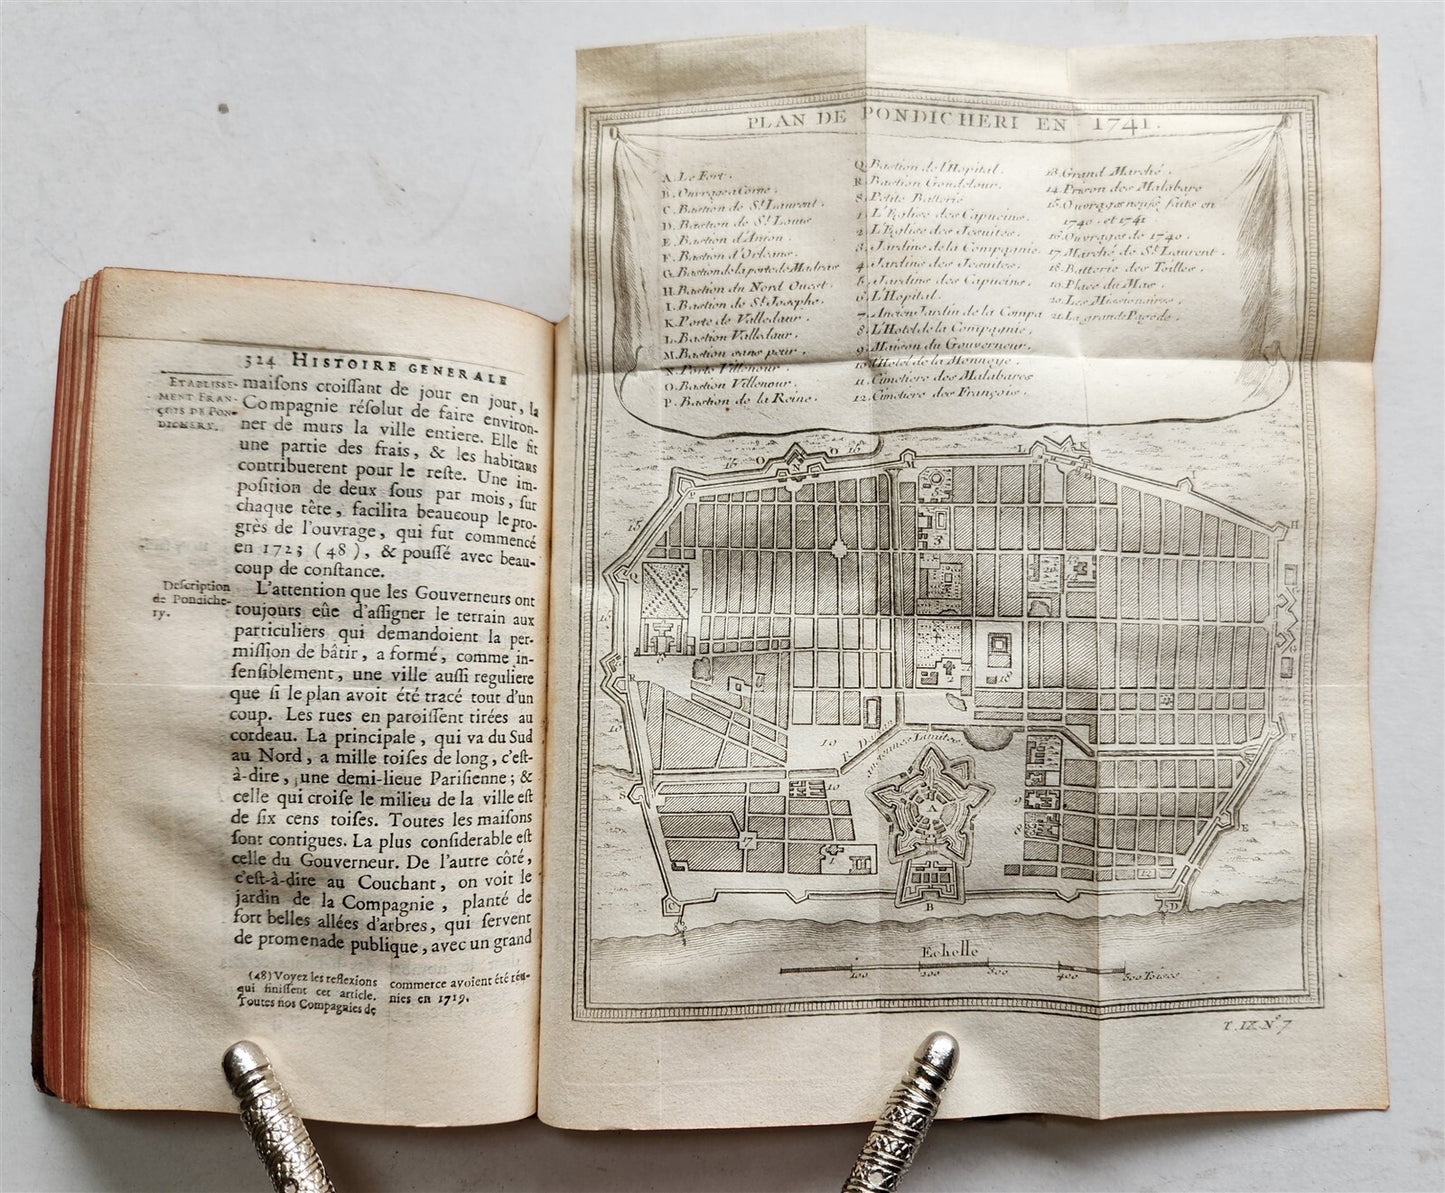 324 HISTOIRE GENERALE
ETABLISSE-
MENT FRAN-
ÇOIS DE PON-
DICHERY.
maiſons croiſſant de jour en jour, la
Compagnie réſolut de faire environ-
ner de murs la ville entiere. Elle fit
une partie des frais, & les habitans
contribuerent pour le reſte. Une im-
poſition de deux ſous par mois, ſur
chaque tête, facilita beaucoup le pro-
grès de l'ouvrage, qui fut commencé
en 1723 (48), & pouſſé avec beau-
coup de conſtance.
Deſcription
de Pondiche-
ry.
L'attention que les Gouverneurs ont
toujours eûe d'aſſigner le terrain aux
particuliers qui demandoient la per-
miſſion de bâtir, a formé, comme in-
ſenſiblement, une ville auſſi reguliere
que ſi le plan avoit été tracé tout d'un
coup. Les rues en paroiſſent tirées au
cordeau. La principale, qui va du Sud
au Nord, a mille toiſes de long, c'eſt-
à-dire, une demi-lieue Pariſienne; &
celle qui croiſe le milieu de la ville eſt
de ſix cens toiſes. Toutes les maiſons
ſont contigues. La plus conſiderable eſt
celle du Gouverneur. De l'autre côté,
c'eſt-à-dire au Couchant, on voit le
jardin de la Compagnie, planté de
fort belles allées d'arbres, qui ſervent
de promenade publique, avec un grand
(48) Voyez les reflexions
qui finiſſent cet article.
Toutes nos Compagnies de
commerce avoient été réu-
nies en 1719.
PLAN DE PONDICHERI EN 1741.
A. Le Fort.
B. Ouvrage a Corne.
C. Bastion de St. Laurent.
D. Bastion de St. Louis
E. Bastion d'Anjou.
F. Bastion d'Orleans.
G. Bastion de la porte de Madras
H. Bastion du Nord Ouest.
I. Bastion de St. Josephe.
K. Porte de Valledaur.
L. Bastion Valledaur.
M. Bastion sans peur.
N. Porte Villenour.
O. Bastion Villenour.
P. Bastion de la Reine.
Q. Bastion de l'Hopital.
R. Bastion Goudelour.
S. Petite Batterie
1. L'Eglise des Capucins.
2. L'Eglise des Jesuites.
3. Jardins de la Compagnie
4. Jardins des Jesuites.
5. Jardins des Capucins.
6. L'Hopital.
7. Ancien Jardin de la Compa
8. L'Hotel de la Compagnie.
9. Maison du Gouverneur.
10. Hotel de la Monnoye.
11. Cimetiere des Malabares
12. Cimetiere des François.
13. Grand Marché.
14. Prison des Malabare
15. Ouvrages neufs faits en
1740. et 1741
16. Ouvrages de 1740.
17. Marché de St. Laurent.
18. Batterie des Toilles.
19. Place du Mas.
20. Les Missionaires.
21. La grande Pagode.
Echelle
100 200 300 400 500 Toises
T. IX. N.º 7